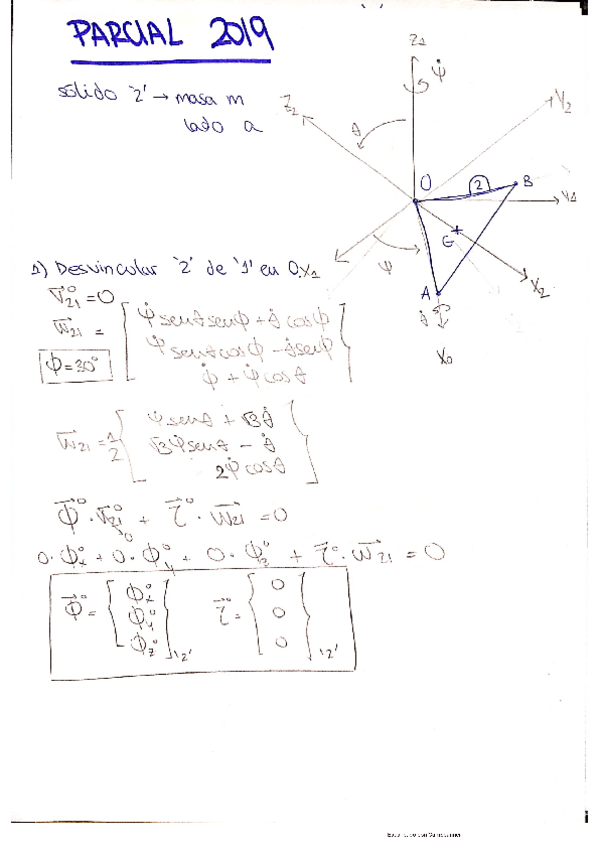 PARCIAL 2019
sólido '2' → masa m
lado a
Z1
ψ̇
Z2
θ
Y2
O
2
B
Y1
G
ψ
X2
A
θ̇
X0
1) Desvincular '2' de '1' en O
V⃗21° = 0
w⃗21 = { ψ̇ senθ senϕ + θ̇ cosϕ
ψ̇ senθ cosϕ - θ̇ senϕ
ϕ̇ + ψ̇ cosθ }
ϕ = 30°
w⃗21 = 1/2 { ψ̇ senθ + √3 θ̇
√3 ψ̇ senθ - θ̇
2ψ̇ cosθ }
ϕ⃗° · V⃗21° + τ⃗° · w⃗21 = 0
0
0 · ϕx° + 0 · ϕy° + 0 · ϕz° + τ⃗° · w⃗21 = 0
ϕ⃗° = { ϕx° ϕy° ϕz° }'2' τ⃗° = { 0 0 0 }'2'